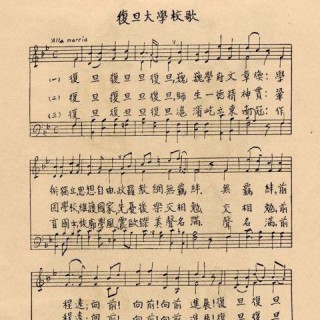 復旦大學校歌
Alla marcia
(一) 復旦復旦復旦,巍巍學府文章煥;學
(2) 復旦復旦復旦,師生一德精神貫;鞏
(3) 復旦復旦復旦,滬濱屹立東南冠;作
術獨立思想自由,政羅教網無羈絆,無羈絆,前
固學校維護國家,先憂後樂交相勉,交相勉,前
育國士恢廓學風,震歐鑠美聲名滿,聲名滿,前
程遠;向前!向前!向前進展!復旦復旦
程遠;向前!向前!向前進展!復旦復旦